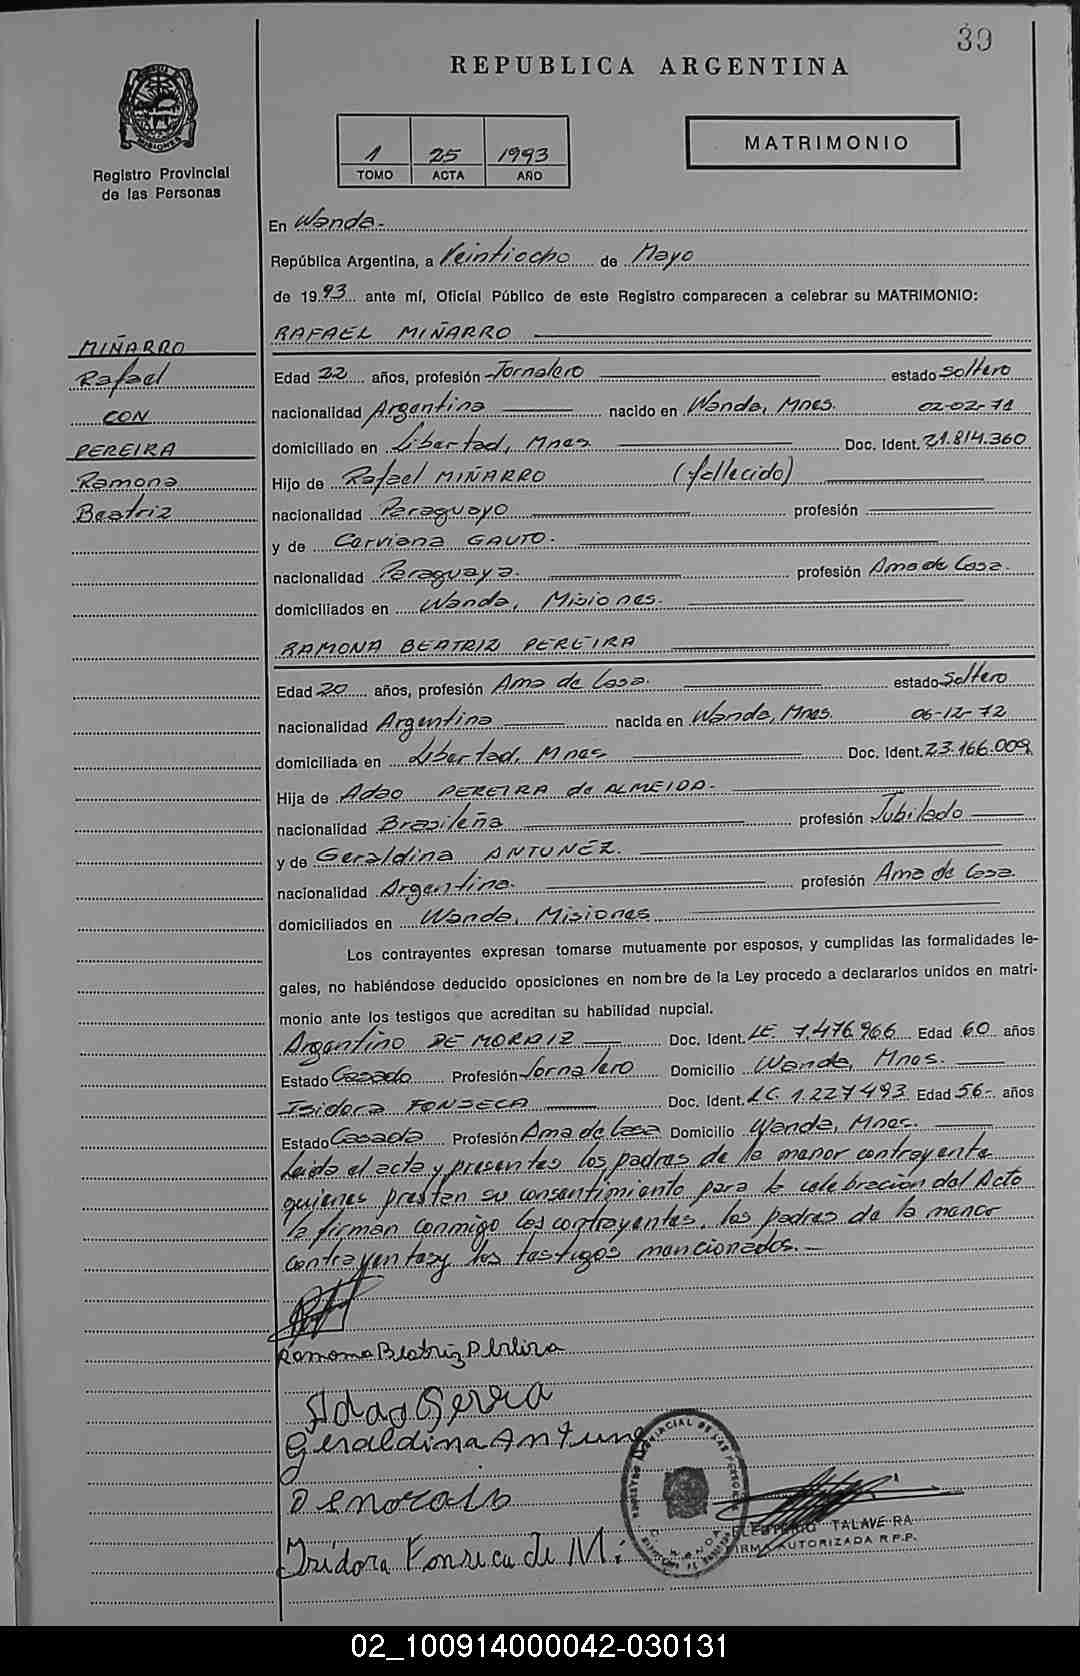 39
REPUBLICA ARGENTINA
MISIONES
Registro Provincial
de las Personas
1 25 1993
TOMO ACTA AÑO
MATRIMONIO
En Wanda.-
República Argentina, a Veintiocho de Mayo
de 1993 ante mí, Oficial Público de este Registro comparecen a celebrar su MATRIMONIO:
MIÑARRO
Rafael
CON
PEREIRA
Ramona
Beatriz
RAFAEL MIÑARRO
Edad 22 años, profesión Jornalero estado Soltero
nacionalidad Argentina nacido en Wanda, Mnes. 02-02-71
domiciliado en Libertad, Mnes. Doc. Ident. 21.814.360
Hijo de Rafael MIÑARRO (fallecido)
nacionalidad Paraguayo profesión
y de Carviana GAUTO.
nacionalidad Paraguaya. profesión Ama de Casa.
domiciliados en Wanda, Misiones.
RAMONA BEATRIZ PEREIRA
Edad 20 años, profesión Ama de Casa. estado Soltero
nacionalidad Argentina nacida en Wanda, Mnes. 06-12-72
domiciliada en Libertad, Mnes Doc. Ident. 23.166.009
Hija de Adao PEREIRA de ALMEIDA.
nacionalidad Brasileña profesión Jubilado
y de Geraldina ANTUNÉZ.
nacionalidad Argentina. profesión Ama de Casa.
domiciliados en Wanda, Misiones
Los contrayentes expresan tomarse mutuamente por esposos, y cumplidas las formalidades le-
gales, no habiéndose deducido oposiciones en nombre de la Ley procedo a declararlos unidos en matri-
monio ante los testigos que acreditan su habilidad nupcial.
Argentino DE MORAIZ Doc. Ident. LE. 7.476.966 Edad 60 años
Estado Casado Profesión Jornalero Domicilio Wanda, Mnes.
Isidora FONSECA Doc. Ident. LC. 1.227.493 Edad 56.- años
Estado Casada Profesión Ama de Casa Domicilio Wanda, Mnes.
Leida el acta y presentes los padres de la menor contrayente
quienes prestan su consentimiento para la celebración del Acto
la firman conmigo los contrayentes, los padres de la menor
contrayentes y los testigos mencionados.-
Ramona Beatriz Pereira
Adao
Geraldina Antune
Demorais
Isidora Fonseca de M.
TALAVERA
FIRMA AUTORIZADA R.P.P.
02_100914000042-030131